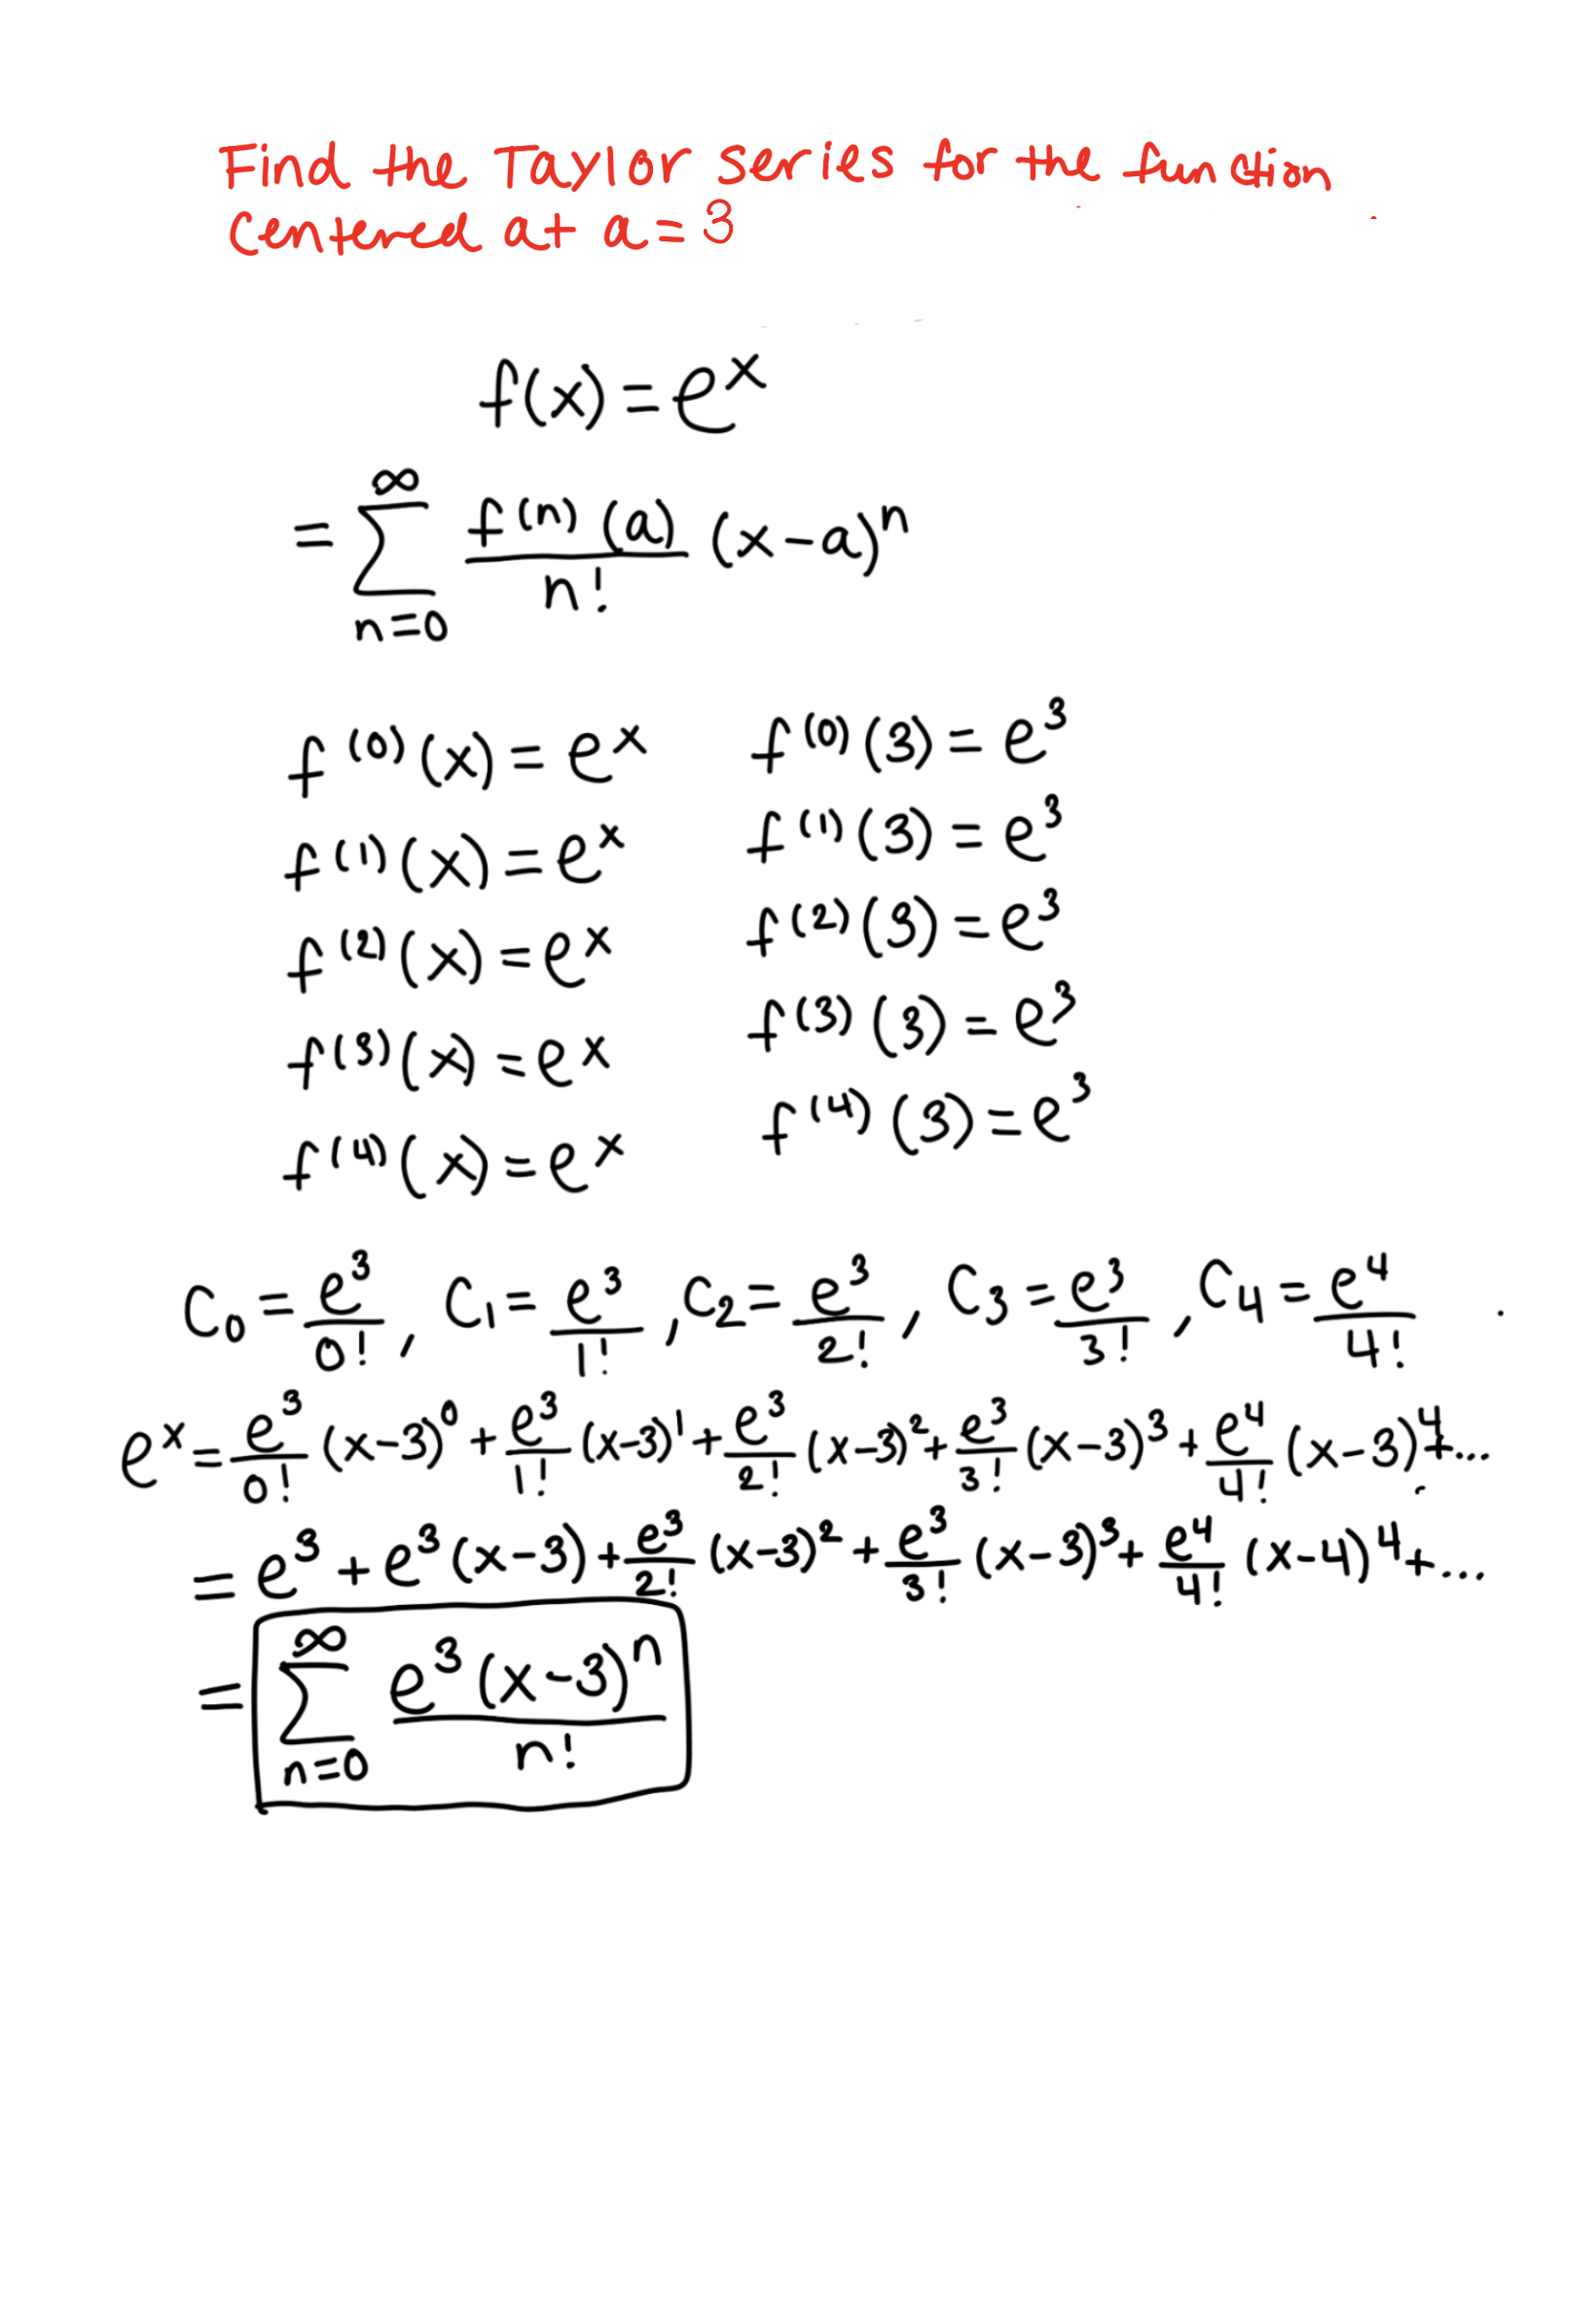 Find the Taylor series for the function
centered at a=3
f(x)=e^x
=∑_{n=0}^{∞} f^{(n)}(a)/n! (x-a)^n
f^{(0)}(x)=e^x f^{(0)}(3)=e^3
f^{(1)}(x)=e^x f^{(1)}(3)=e^3
f^{(2)}(x)=e^x f^{(2)}(3)=e^3
f^{(3)}(x)=e^x f^{(3)}(3)=e^3
f^{(4)}(x)=e^x f^{(4)}(3)=e^3
C_0=e^3/0!, C_1=e^3/1!, C_2=e^3/2!, C_3=e^3/3!, C_4=e^4/4!
e^x=e^3/0!(x-3)^0+e^3/1!(x-3)^1+e^3/2!(x-3)^2+e^3/3!(x-3)^3+e^4/4!(x-3)^4+...
=e^3+e^3(x-3)+e^3/2!(x-3)^2+e^3/3!(x-3)^3+e^4/4!(x-4)^4+...
=∑_{n=0}^{∞} e^3(x-3)^n/n!